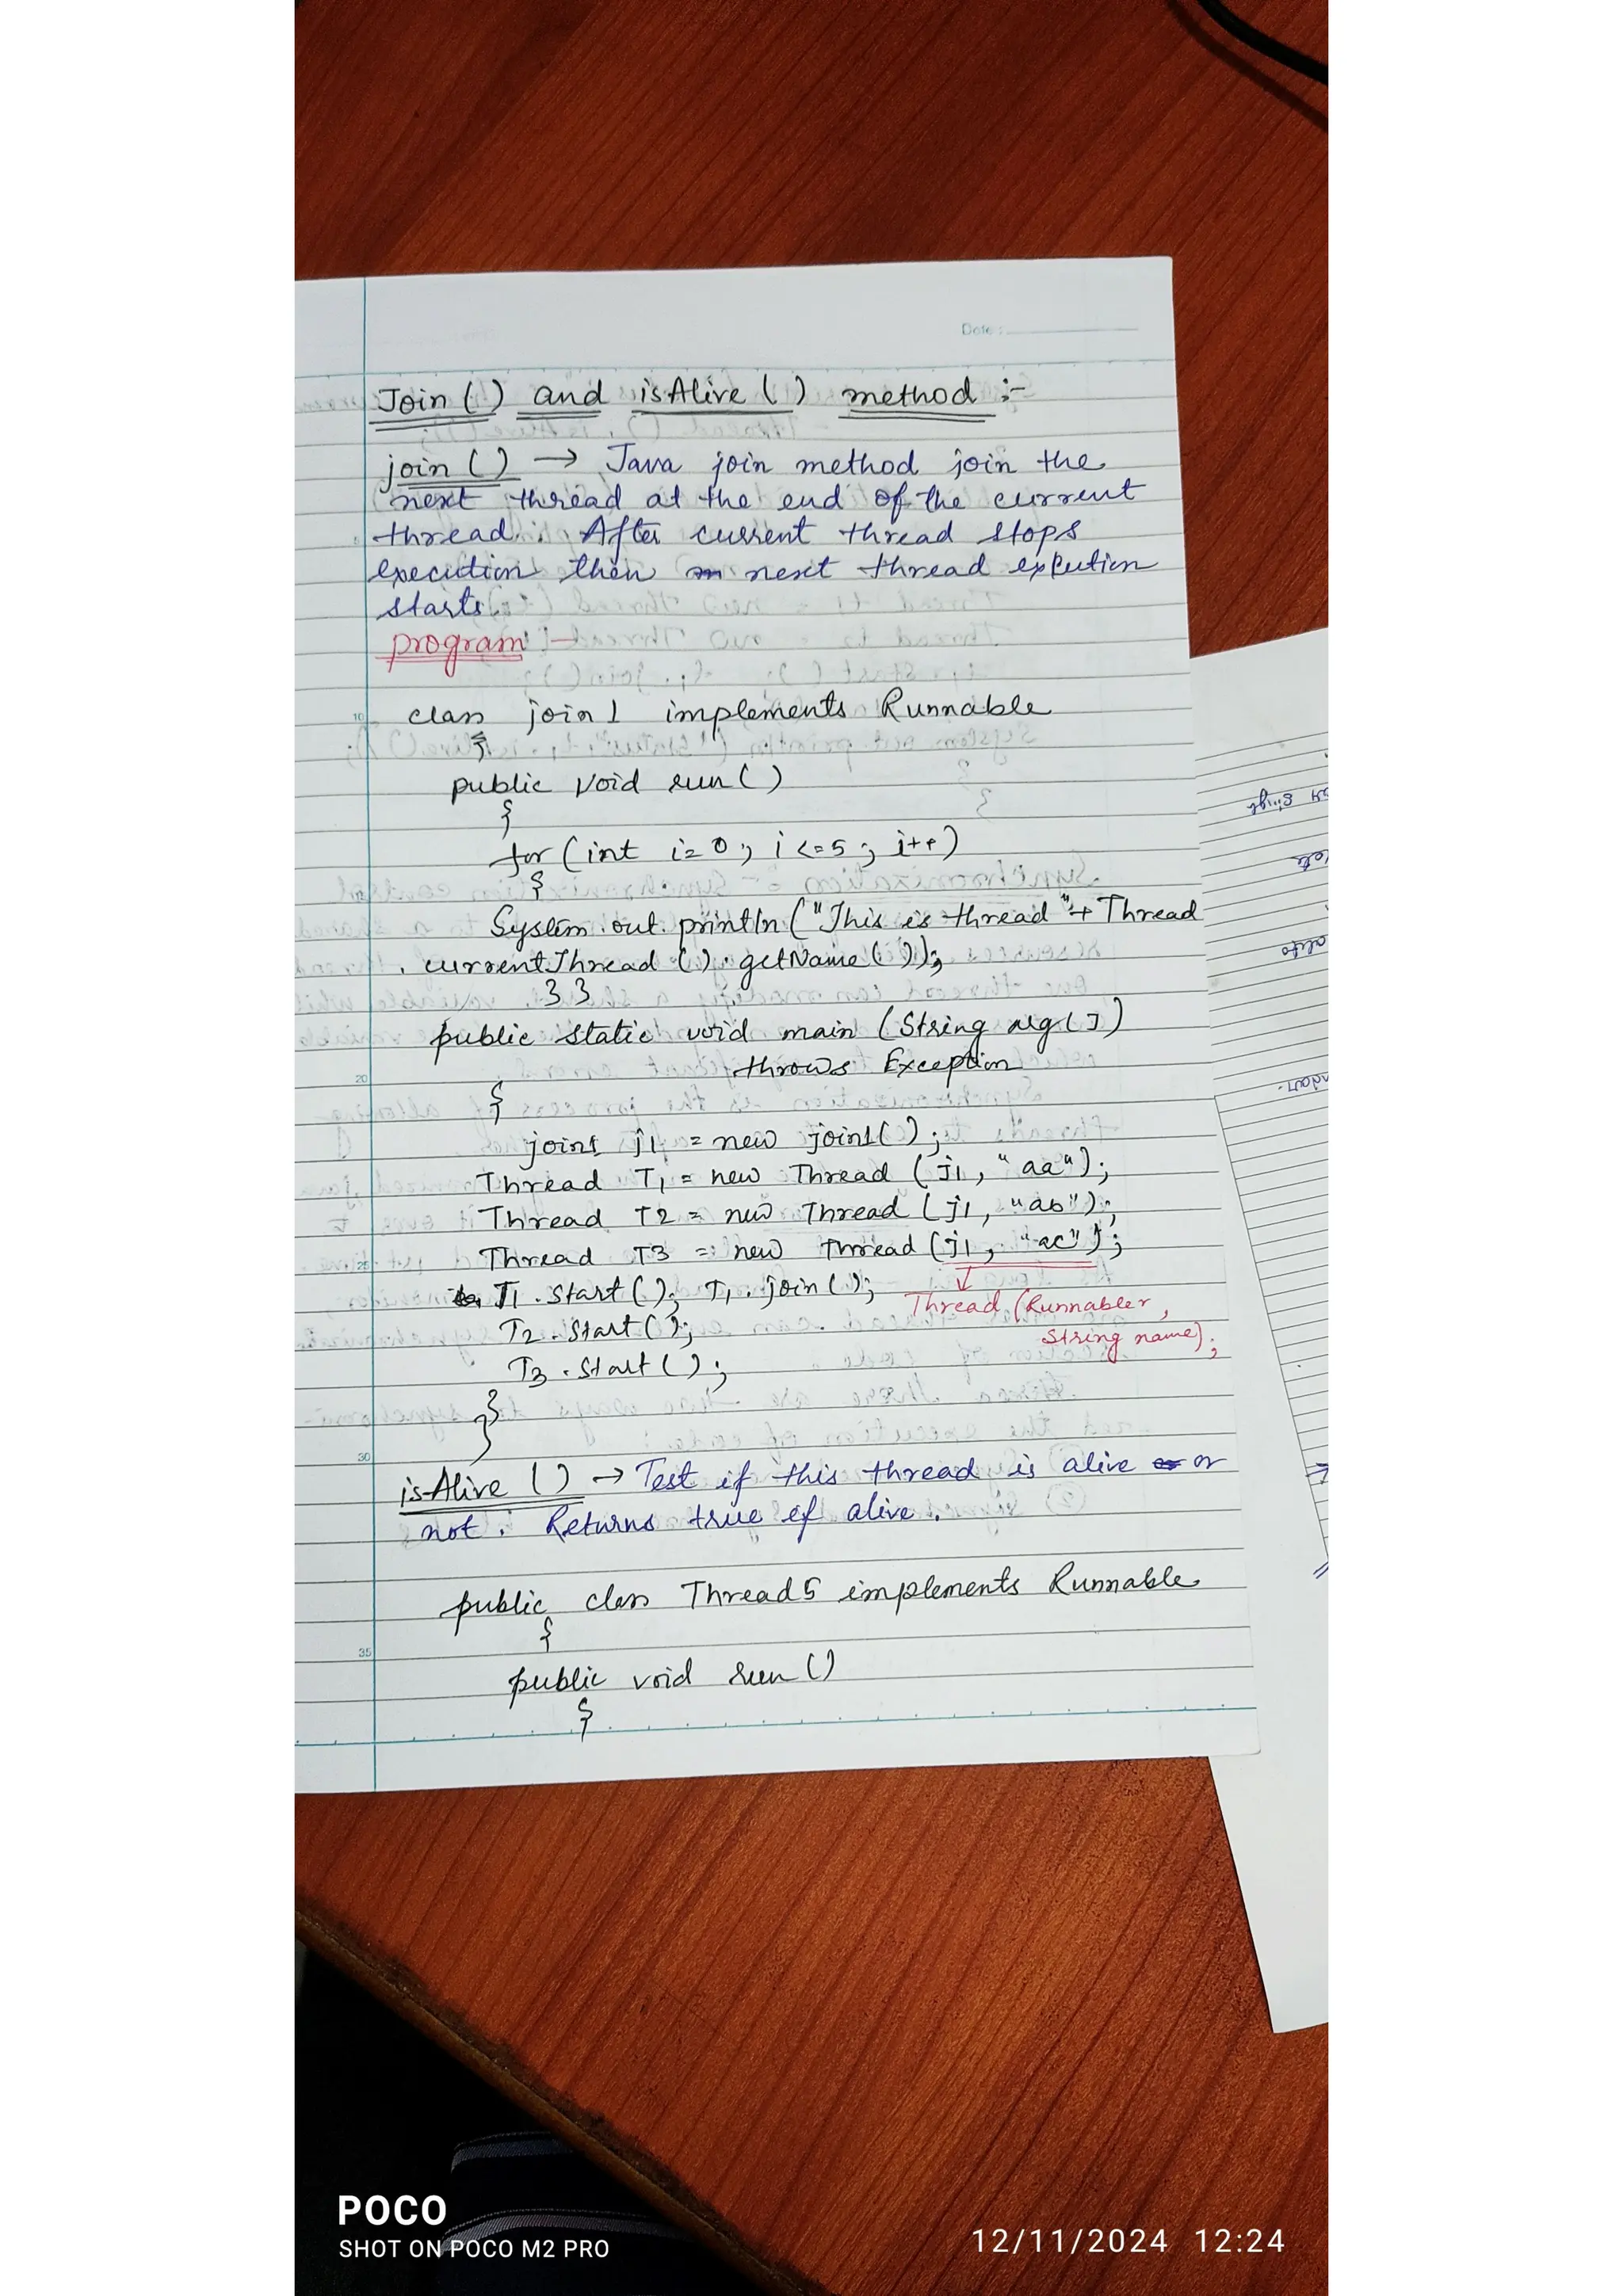 Date :
Join ( ) and isAlive ( ) method :-
join ( ) → Java join method join the
next thread at the end of the current
thread. After current thread stops
execution then next thread expcution
starts.
program :-
10
class join 1 implements Runnable
{
public void run ( )
{
for (int i = 0 ; i <= 5 ; i++)
{
System.out.println ("This is thread "+ Thread
. currentThread ( ) . getName ( ) ) ;
} }
public static void main (String arg [ ] )
throws Exception
20
{
join1 j1 = new join1( ) ;
Thread T1 = new Thread ( j1, "aa" ) ;
Thread T2 = new Thread ( j1, "ab" ) ;
25
Thread T3 = new Thread ( j1, "ac" ) ;
T1 . Start ( ) ; T1 . join ( ) ;
Thread (Runnabler,
String name) ;
T2 . Start ( ) ;
T3 . Start ( ) ;
}
}
30
isAlive ( ) → Test if this thread is alive or
not . Returns true if alive .
public class Thread5 implements Runnable
{
35
public void run ( )
{
POCO
SHOT ON POCO M2 PRO
12/11/2024 12:24